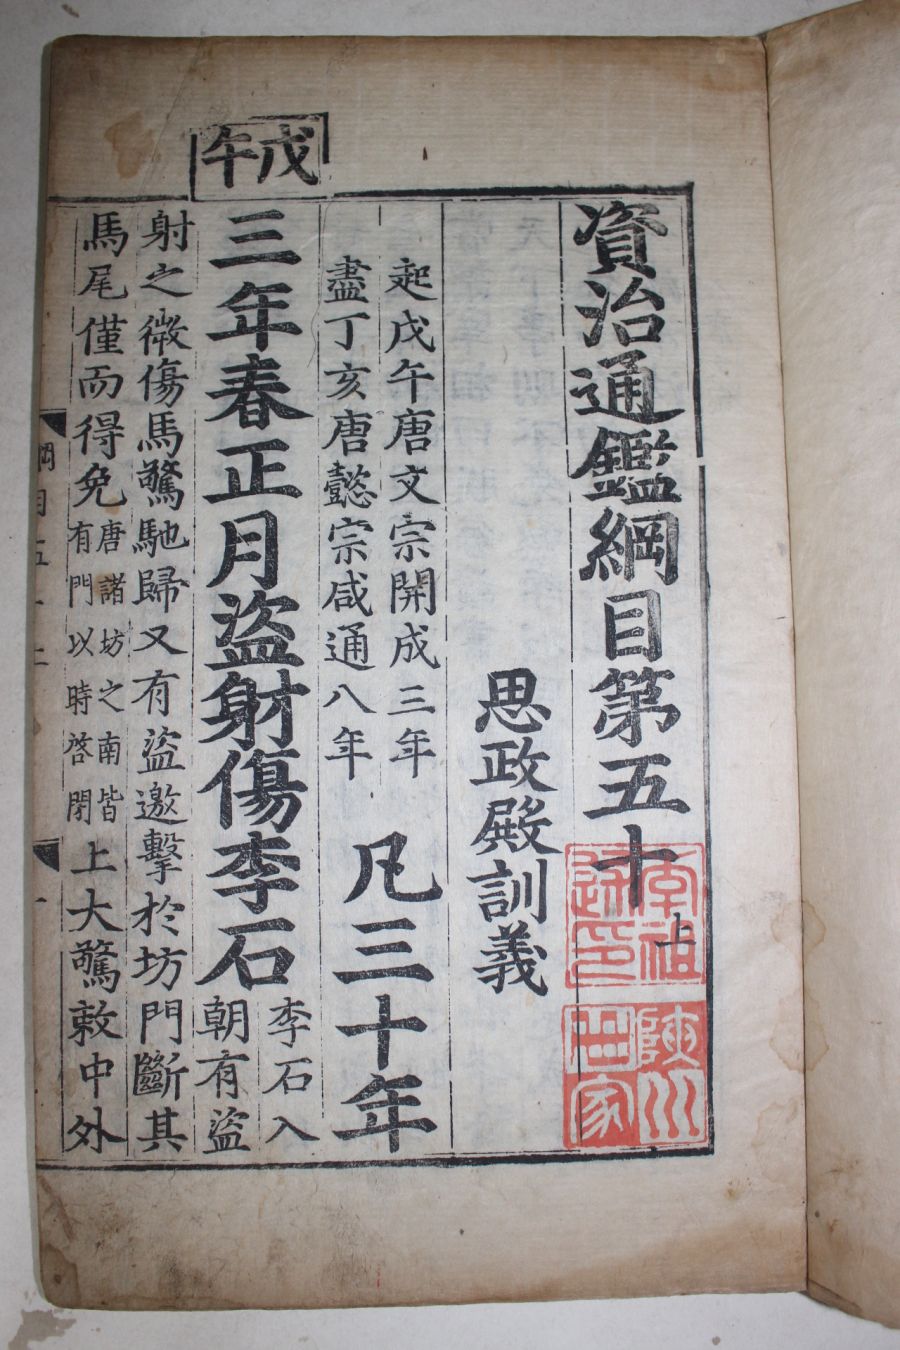 資治通鑑綱目第五十上
李祖述印
陜川世家
思政殿訓義
起戊午唐文宗開成三年
盡丁亥唐懿宗咸通八年
凡三十年
戊午
三年春正月盜射傷李石
李石入
朝有盜
射之微傷馬驚馳歸又有盜邀擊於坊門斷其
馬尾僅而得免
唐諸坊之南皆
有門以時啓閉
上大驚敕中外
綱目五十上